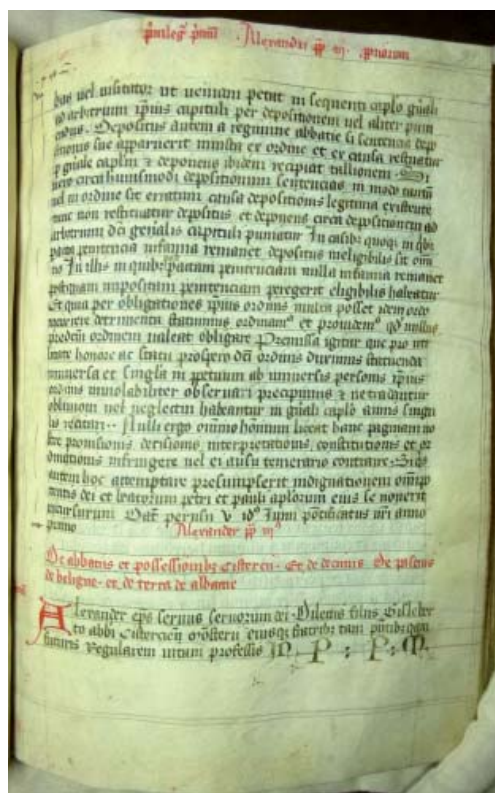 priuileg pmi Alexandri pp iij
bus uel uisitator ut ueniam petat in sequenti caplo gnali
ad arbitrium ipius capituli per depositionem uel aliter puni
endus. Depositus autem a regimine abbatie si sentencia depo
sitionis sue apparuerit iniusta ex ordine et ex causa restituatur
p gnale caplm & deponens ibidem recipiat tallionem. Si
uero circa huiusmodi depositionum sentencias in modo
uel in ordine sit erratum causa depositionis legitima existente
tunc non restituatur depositus et deponens circa depositionem ad
arbitrium dci genalis capituli puniatur In casib quoq in qb
penitencia infamia remanet depositus ineligibilis sit omi
no In illis in quib pactam penitenciam nulla infamia remanet
postquam impositam penitenciam peregerit eligibilis habeatur
Et quia per obligationes ipius ordinis multa posset idem ordo
incurrere detrimenta statuimus ordinam et prouidem qd nullus
predcm ordinem ualeat obligare Premissa igitur que pro uti
litate honore ac statu prospero dci ordinis duximus statuenda
uniuersa et singla in ppetuum ab uniuersis personis ipius
ordinis inuiolabiliter obseruari precipimus & ne tradantur
obliuioni uel neglectui habeantur in gnali caplo annis singu
lis recitari. Nulli ergo omnino hominum liceat hanc paginam no
stre prouisionis, decisionis, interpretationis, constitutionis et or
dinationis infringere uel ei ausu temerario contraire. Siqs
autem hoc attemptare presumpserit indignationem omnipo
tentis dei et beatorum petri et pauli aplorum eius se nouerit
incursurum Dat perusii v id Iunii pontificatus nri anno
primo Alexander pp iij
De abbatis et possessionibz Cistercii. Et de decimis De pascuis
de beligne. et de terra de albane
Alexander eps seruus seruorum dei. Dilectis filiis Gisleber
to abbi Cisterciens monsterii eiusqz fratribz tam psentibz qam
futuris Regularem uitam professis IN. P : P : M.